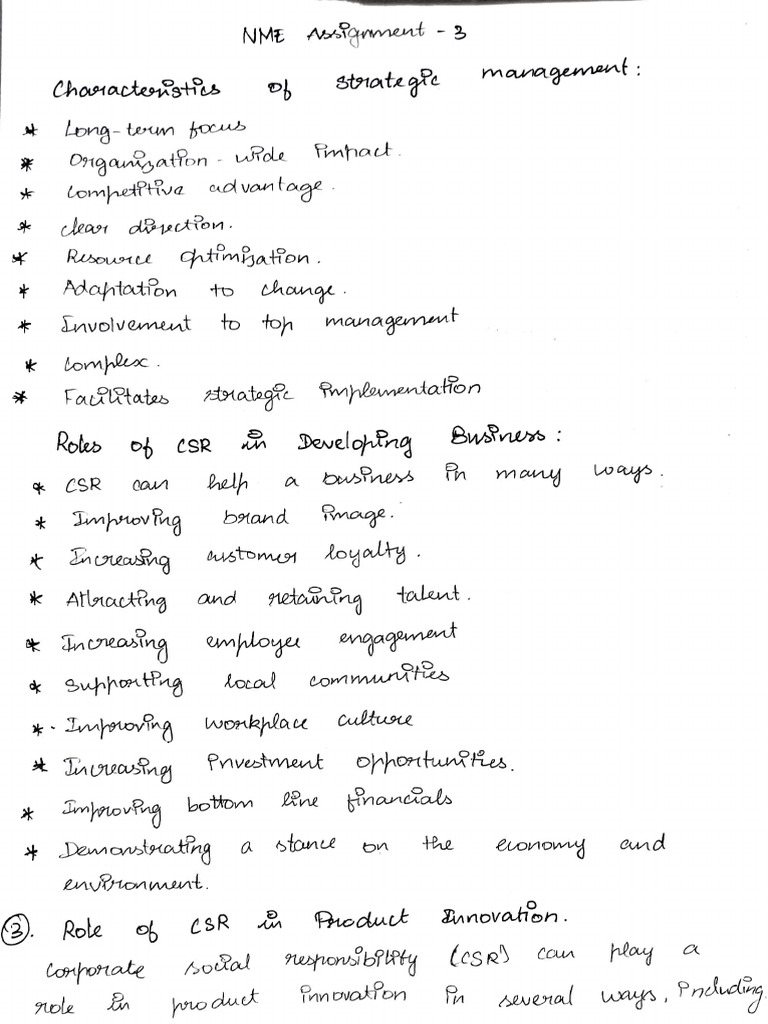 NME Assignment - 3
Characteristics of strategic management:
* Long-term focus
* Organization-wide impact.
* Competitive advantage.
* clear direction.
* Resource Optimization.
* Adaptation to change.
* Involvement to top management
* complex.
* Facilitates strategic implementation
Roles of CSR in Developing Business:
* CSR can help a business in many ways.
* Improving brand image.
* Increasing customer loyalty.
* Attracting and retaining talent.
* Increasing employee engagement
* Supporting local communities
* Improving workplace culture
* Increasing investment opportunities.
* Improving bottom line financials
* Demonstrating a stance on the economy and
environment.
3. Role of CSR in Product Innovation.
Corporate social responsibility (CSR) can play a
role in product innovation in several ways, including